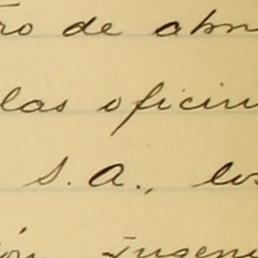 ro de abri
las oficin
S. A., los
ón Ingeni